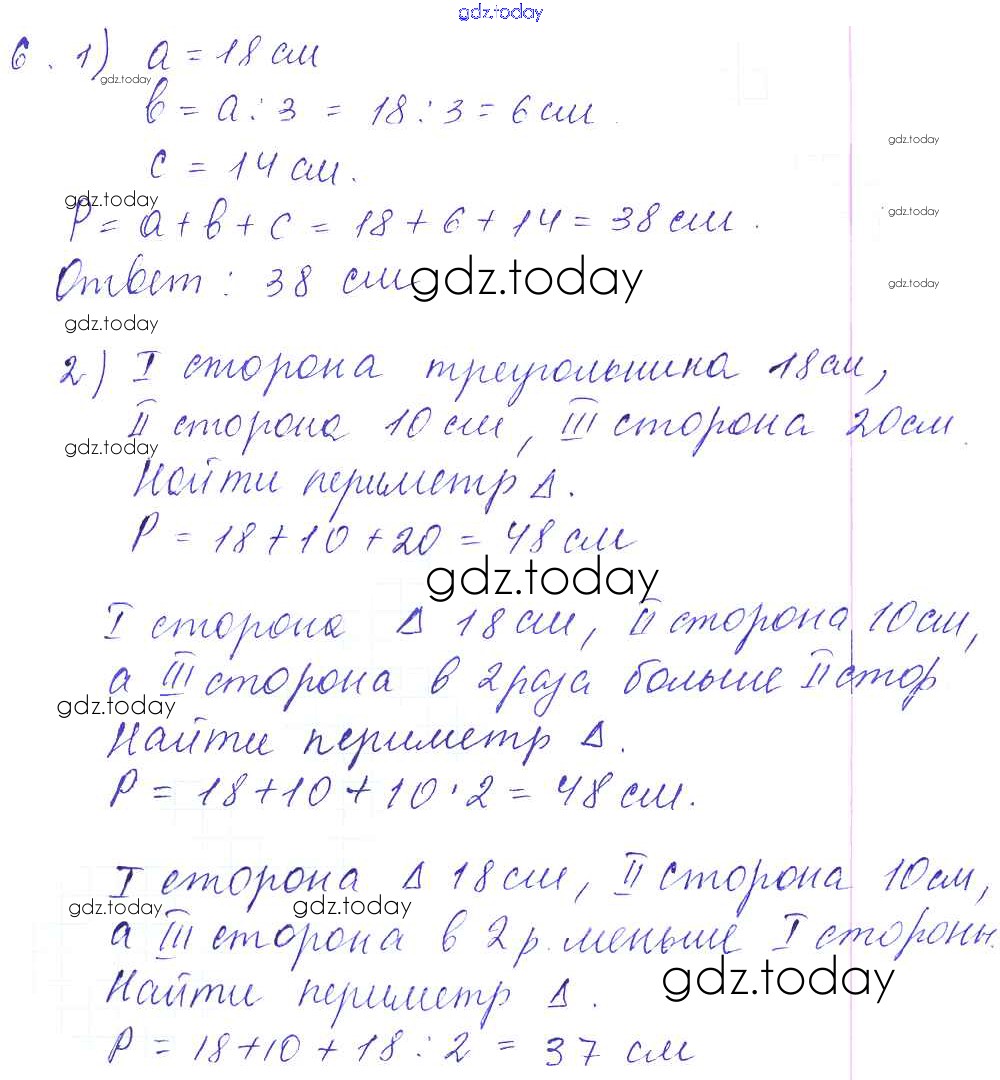 gdz.today
6. 1) a = 18 см
gdz.today
в = a : 3 = 18 : 3 = 6 см.
gdz.today
c = 14 см.
gdz.today
gdz.today
P = a + в + c = 18 + 6 + 14 = 38 см.
Ответ: 38 см
gdz.today
gdz.today
gdz.today
2) I сторона треугольника 18 см,
II сторона 10 см, III сторона 20 см.
gdz.today
Найти периметр Δ.
P = 18 + 10 + 20 = 48 см
gdz.today
I сторона Δ 18 см, II сторона 10 см,
а III сторона в 2 раза больше II стор
gdz.today
Найти периметр Δ.
P = 18 + 10 + 10 · 2 = 48 см.
I сторона Δ 18 см, II сторона 10 см,
gdz.today
gdz.today
а III сторона в 2 р. меньше I стороны.
gdz.today
Найти периметр Δ.
P = 18 + 10 + 18 : 2 = 37 см